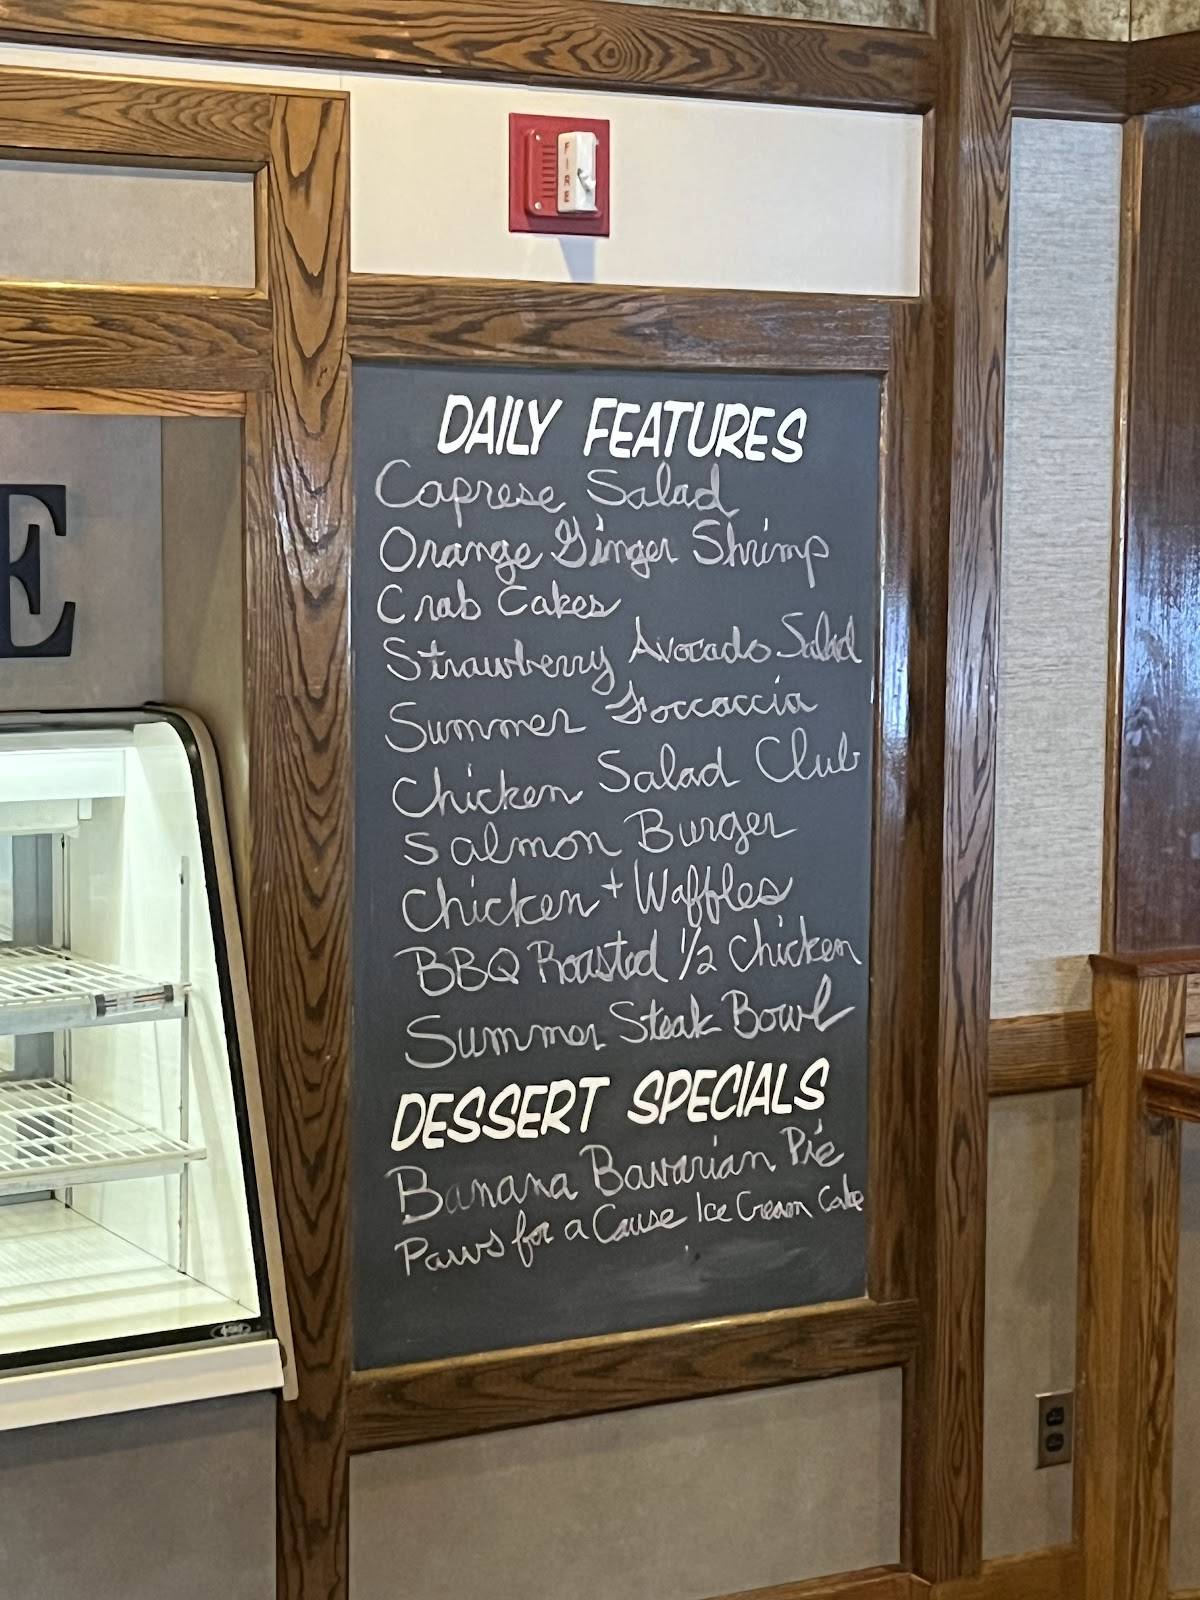 FIRE
E
DAILY FEATURES
Caprese Salad
Orange Ginger Shrimp
Crab Cakes
Strawberry Avocado Salad
Summer Foccaccia
Chicken Salad Club
Salmon Burger
Chicken + Waffles
BBQ Roasted 1/2 Chicken
Summer Steak Bowl
DESSERT SPECIALS
Banana Bavarian Pie
Paws for a Cause Ice Cream Cake